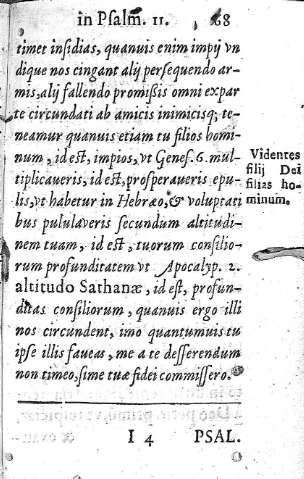 in Psalm. 11. 68
timet insidias, quanuis enim impij vn
dique nos cingant alij persequendo ar-
mis, alij fallendo promißis omni ex par
te circundati ab amicis inimicisq; te-
neamur quanuis etiam tu filios homi-
num, id est, impios, vt Genes. 6. mul-
tiplicaueris, id est, prosperaueris epu-
lis, vt habetur in Hebræo, & voluptati
bus pululaveris secundum altitudi-
nem tuam, id est, tuorum consilio-
rum profunditatem vt Apocalyp. 2.
altitudo Sathanæ, id est, profun-
ditas consiliorum, quanuis ergo illi
nos circundent, imo quantumuis tu
ipse illis faueas, me a te desserendum
non timeo, si me tuæ fidei commissero.
Videntes
filij Dei
filias ho-
minum.
I 4 PSAL.